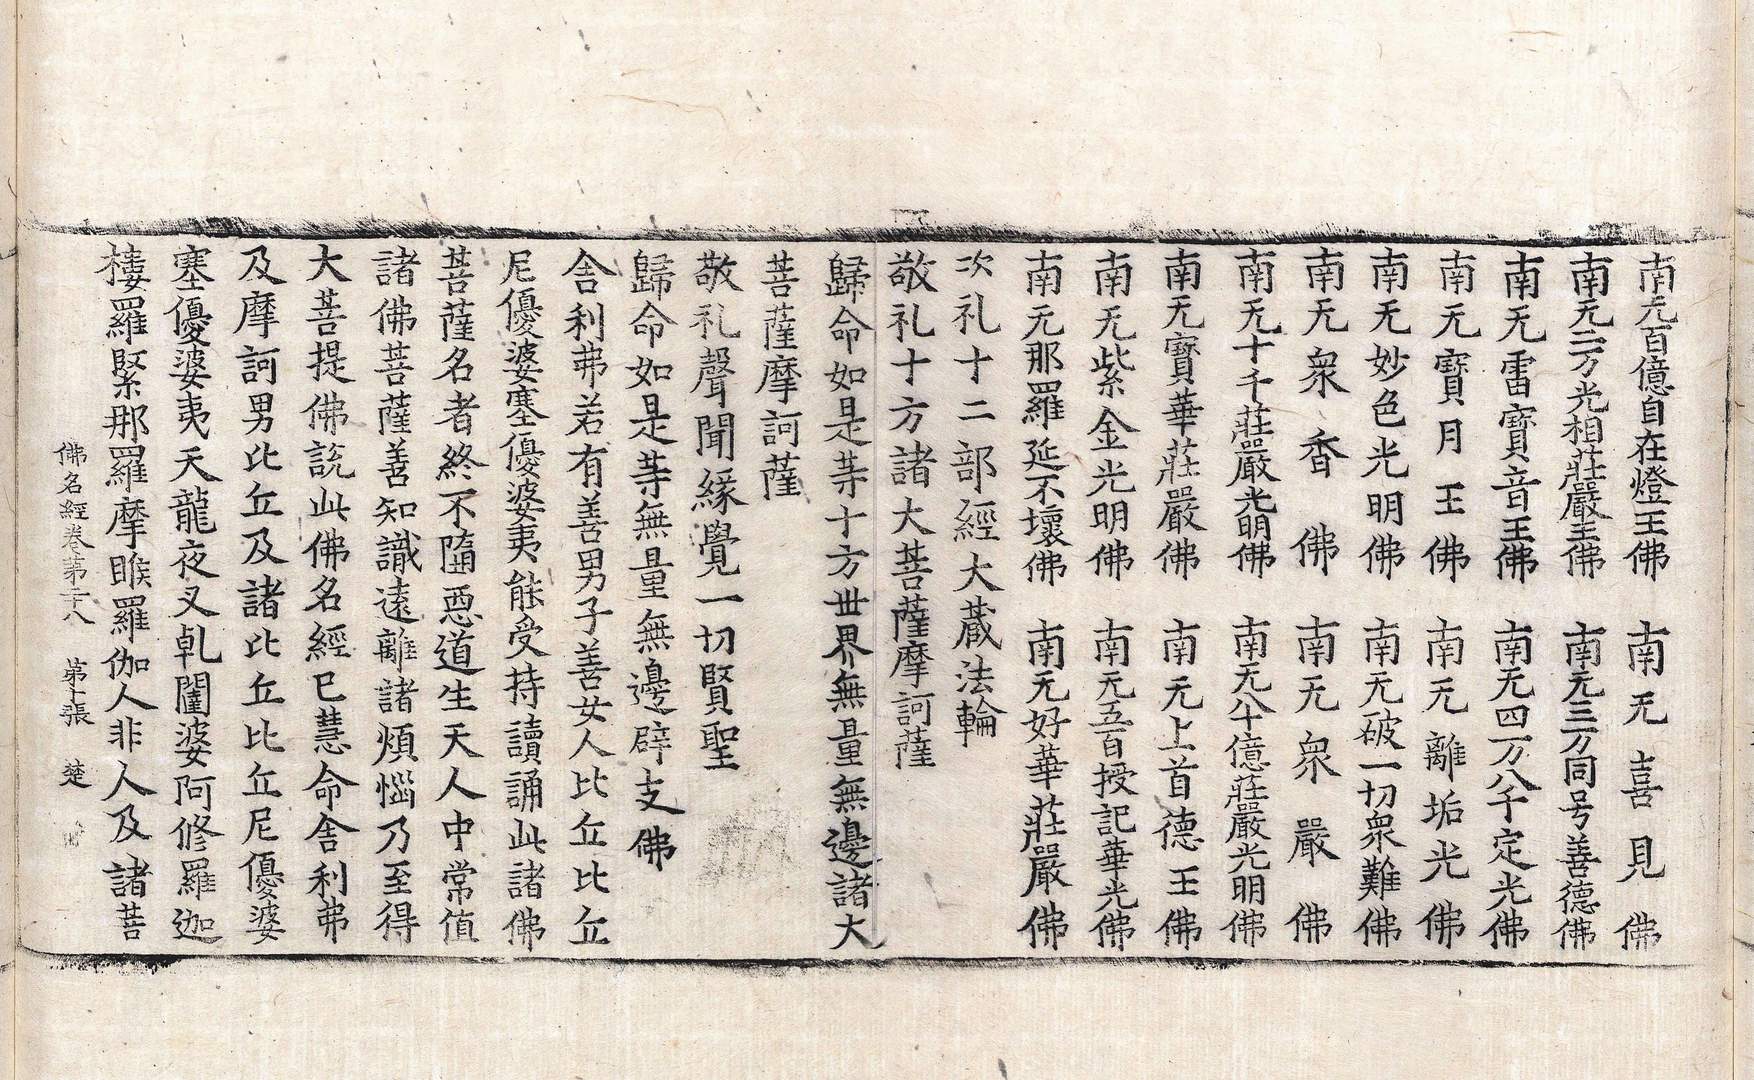 南无百億自在燈王佛　南无喜見佛
南无二万光相莊嚴王佛　南无三万同号善德佛
南无雷寶音王佛　南无四万八千定光佛
南无寶月王佛　南无離垢光佛
南无妙色光明佛　南无破一切衆難佛
南无衆香佛　南无衆嚴佛
南无十千莊嚴光明佛　南无八十億莊嚴光明佛
南无寶華莊嚴佛　南无上首德王佛
南无紫金光明佛　南无五百授記華光佛
南无那羅延不壞佛　南无好華莊嚴佛
次礼十二部經大藏法輪
敬礼十方諸大菩薩摩訶薩
歸命如是等十方世界無量無邊諸大
菩薩摩訶薩
敬礼聲聞緣覺一切賢聖
歸命如是等無量無邊辟支佛
舍利弗若有善男子善女人比丘比丘
尼優婆塞優婆夷能受持讀誦此諸佛
菩薩名者終不墮惡道生天人中常值
諸佛菩薩善知識遠離諸煩惱乃至得
大菩提佛說此佛名經已慧命舍利弗
及摩訶男比丘及諸比丘比丘尼優婆
塞優婆夷天龍夜叉乹闥婆阿修羅迦
樓羅緊那羅摩睺羅伽人非人及諸菩
佛名經卷苐二十八　苐十張　楚